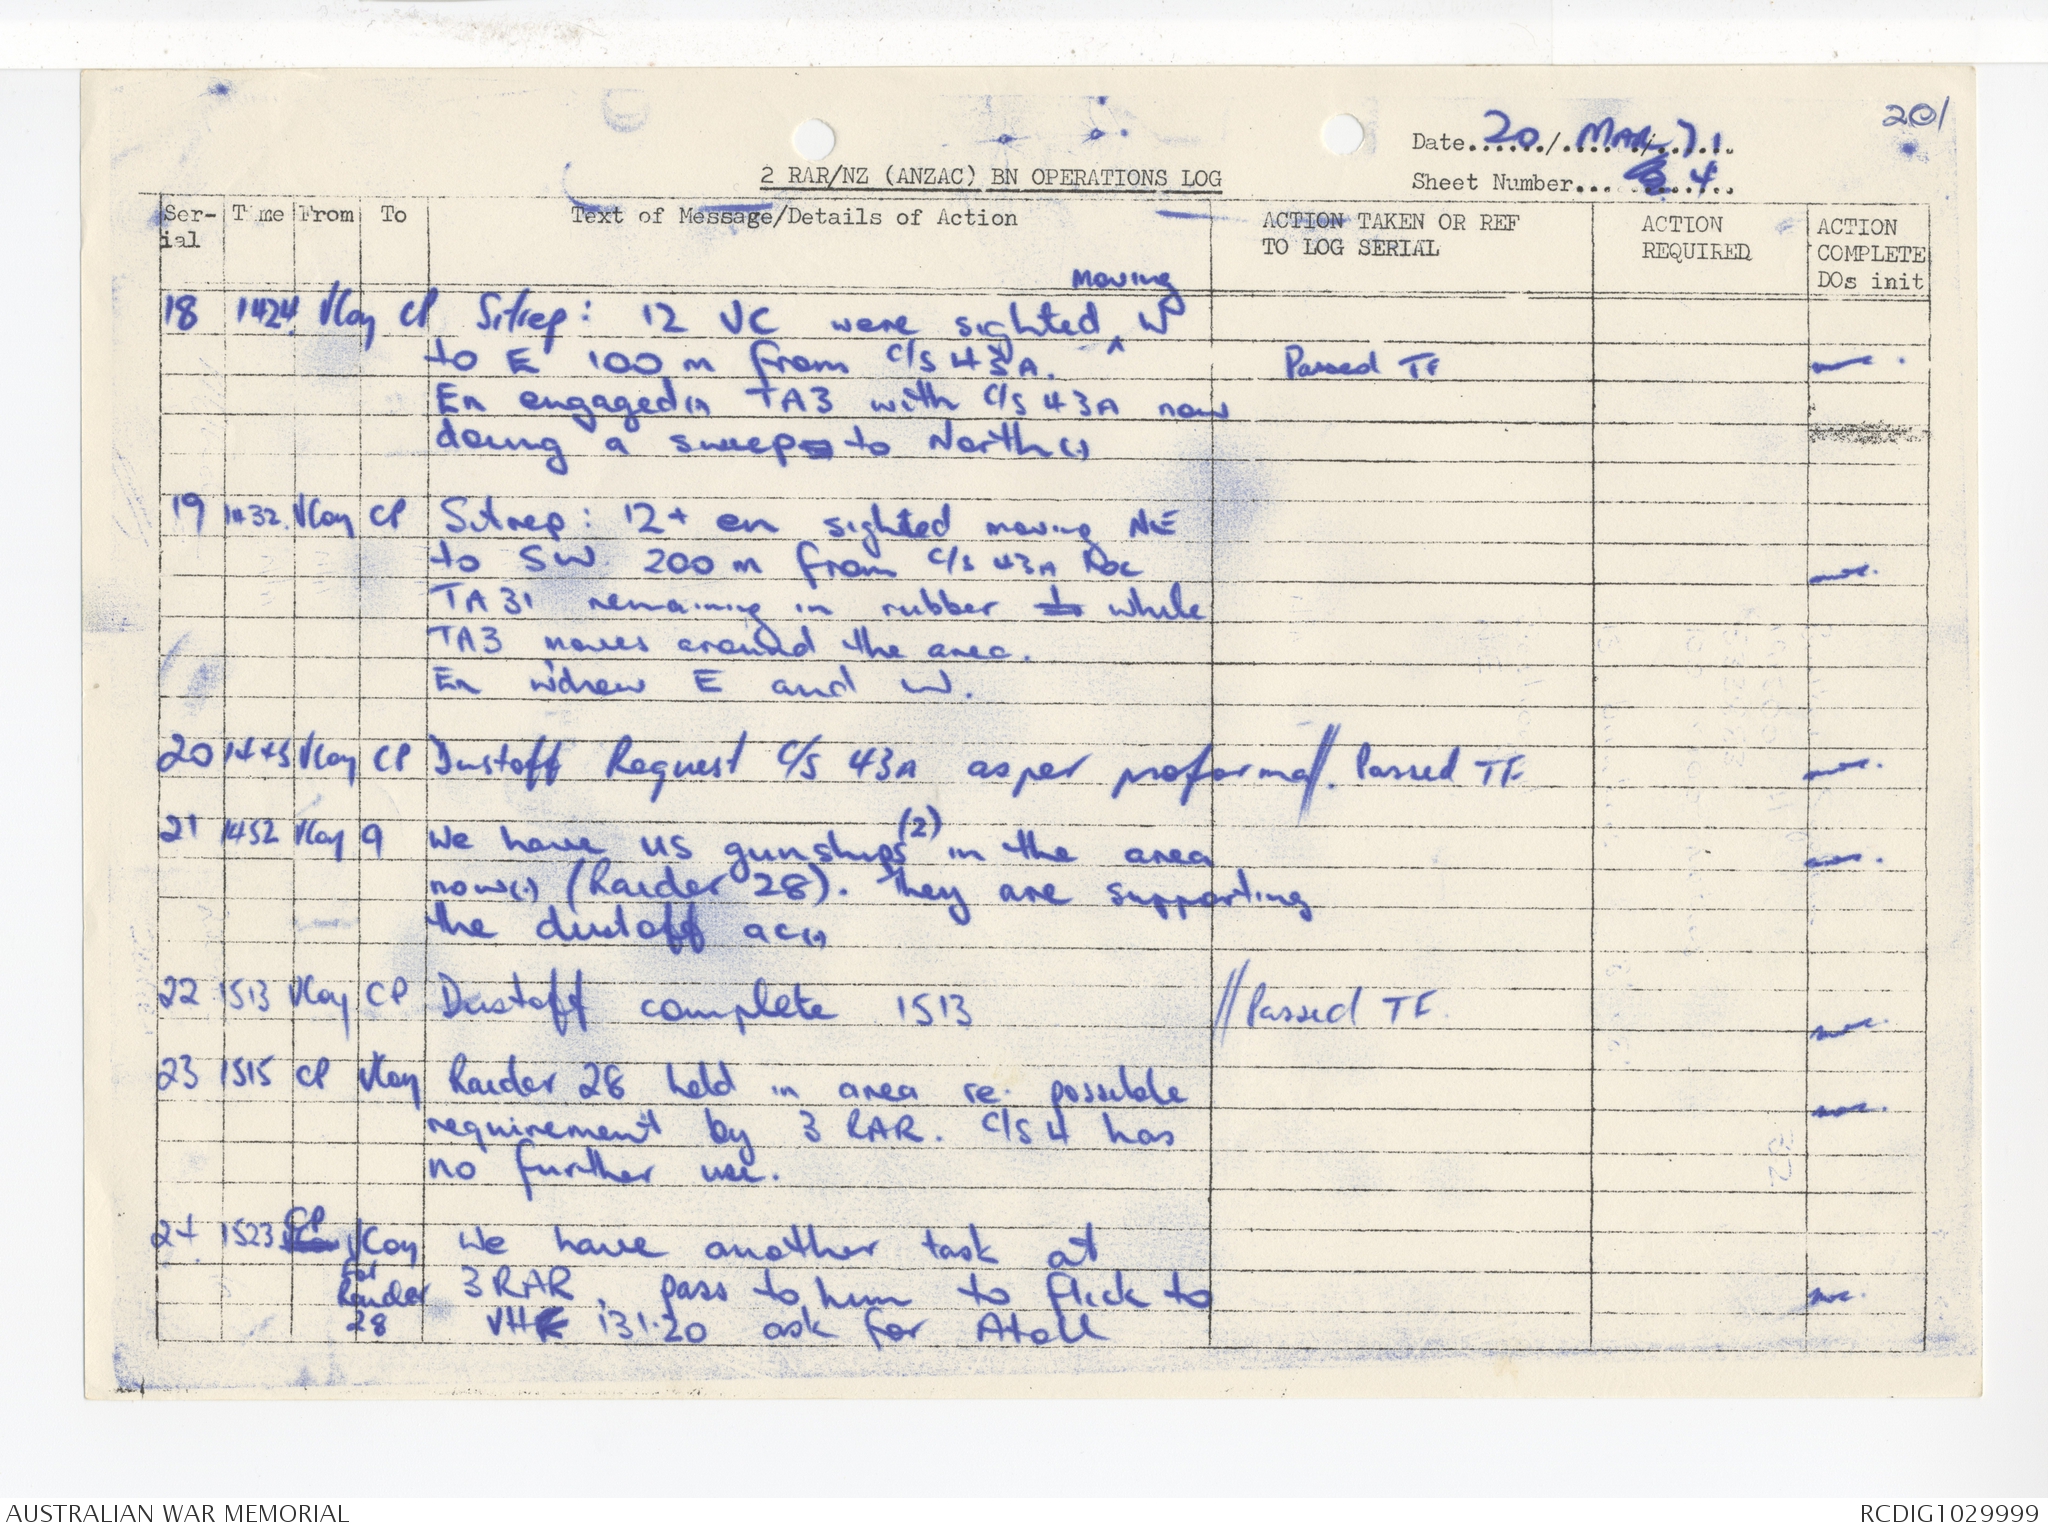 201
Date 20/MAR/71
Sheet Number 4
2 RAR/NZ (ANZAC) BN OPERATIONS LOG
Ser-ial Time From To Text of Message/Details of Action ACTION TAKEN OR REF TO LOG SERIAL ACTION REQUIRED ACTION COMPLETE DOs init
moving
18 1424 VCoy CP Sitrep: 12 VC were sighted ^ W
to E 100 m from C/S 43A. Passed TF
En engaged in TA3 with C/S 43A now
doing a sweep to North(.)
19 1432 VCoy CP Sitrep: 12+ en sighted moving NE
to SW 200 m from C/S 43A loc
TA31 remaining in rubber to while
TA3 moves around the area.
En w'drew E and W.
20 1445 VCoy CP Dustoff Request C/S 43A as per proforma//. Passed TF
21 1452 VCoy 9 We have US gunships (2) in the area
now(.) (Raider 28). They are supporting
the dustoff ac(.)
22 1513 VCoy CP Dustoff complete 1513 // Passed TF.
23 1515 CP VCoy Raider 28 held in area re. possible
requirement by 3 RAR. C/S 4 has
no further use.
24 1523 CP VCoy We have another task at
for Raider 28
3 RAR, pass to him to flick to
VHF 131.20 ask for Atoll
AUSTRALIAN WAR MEMORIAL
RCDIG1029999